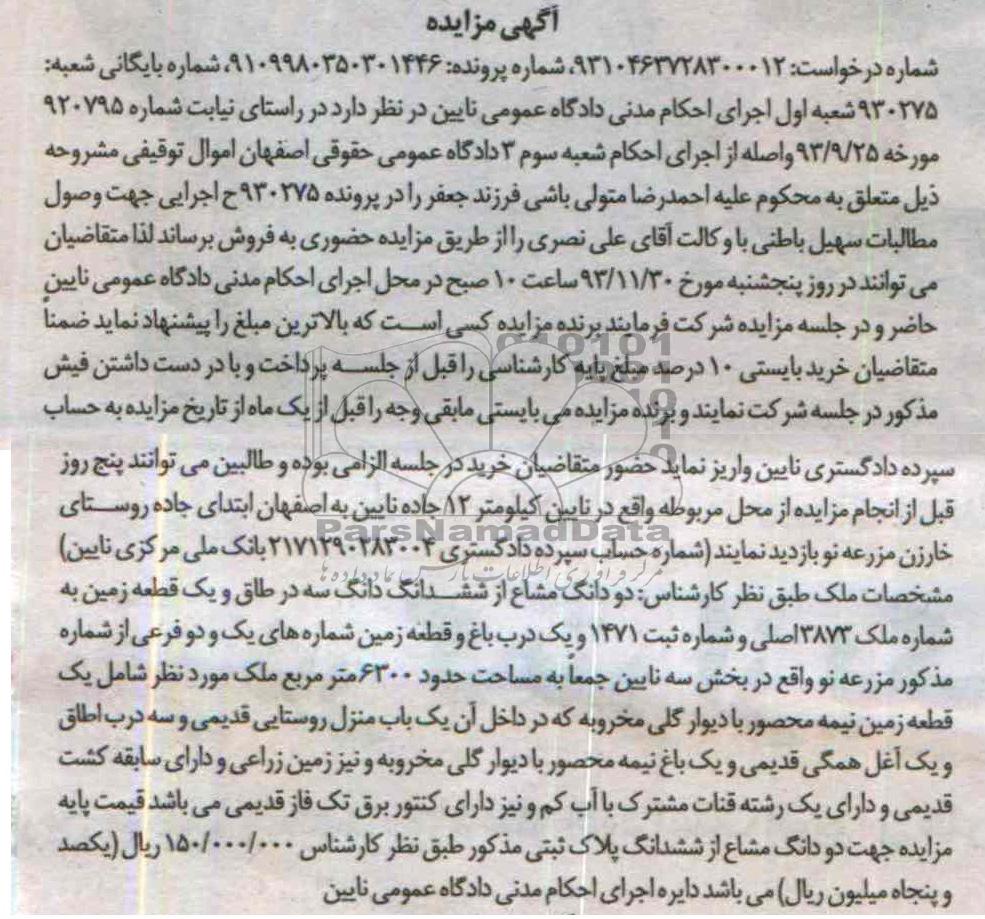 آگهی مزایده
شماره درخواست: ۹۳۱۰۴۶۳۷۲۸۳۰۰۰۱۲، شماره پرونده: ۹۱۰۹۹۸۰۳۵۰۳۰۱۴۴۶، شماره بایگانی شعبه:
۹۳۰۲۷۵ شعبه اول اجرای احکام مدنی دادگاه عمومی نایین در نظر دارد در راستای نیابت شماره ۹۲۰۷۹۵
مورخه ۹۳/۹/۲۵ واصله از اجرای احکام شعبه سوم ۳ دادگاه عمومی حقوقی اصفهان اموال توقیفی مشروحه
ذیل متعلق به محکوم علیه احمدرضا متولی باشی فرزند جعفر را در پرونده ۹۳۰۲۷۵ ح اجرایی جهت وصول
مطالبات سهیل باطنی با وکالت آقای علی نصری را از طریق مزایده حضوری به فروش برساند لذا متقاضیان
می توانند در روز پنجشنبه مورخ ۹۳/۱۱/۳۰ ساعت ۱۰ صبح در محل اجرای احکام مدنی دادگاه عمومی نایین
حاضر و در جلسه مزایده شرکت فرمایند برنده مزایده کسی است که بالاترین مبلغ را پیشنهاد نماید ضمناً
متقاضیان خرید بایستی ۱۰ درصد مبلغ پایه کارشناسی را قبل از جلسه پرداخت و با در دست داشتن فیش
مذکور در جلسه شرکت نمایند و برنده مزایده می بایستی مابقی وجه را قبل از یک ماه از تاریخ مزایده به حساب
سپرده دادگستری نایین واریز نماید حضور متقاضیان خرید در جلسه الزامی بوده و طالبین می توانند پنج روز
قبل از انجام مزایده از محل مربوطه واقع در نایین کیلومتر ۱۲ جاده نایین به اصفهان ابتدای جاده روستای
خارزن مزرعه نو بازدید نمایند (شماره حساب سپرده دادگستری ۲۱۷۱۲۹۰۲۸۳۰۰۴ بانک ملی مرکزی نایین)
ParsNamadData
مرکز فرآوری اطلاعات پارس نماد داده ها
مشخصات ملک طبق نظر کارشناس: دو دانگ مشاع از ششدانگ دانگ سه در طاق و یک قطعه زمین به
شماره ملک ۳۸۷۳ اصلی و شماره ثبت ۱۴۷۱ و یک درب باغ و قطعه زمین شماره های یک و دو فرعی از شماره
مذکور مزرعه نو واقع در بخش سه نایین جمعاً به مساحت حدود ۶۳۰۰ متر مربع ملک مورد نظر شامل یک
قطعه زمین نیمه محصور با دیوار گلی مخروبه که در داخل آن یک باب منزل روستایی قدیمی و سه درب اطاق
و یک آغل همگی قدیمی و یک باغ نیمه محصور با دیوار گلی مخروبه و نیز زمین زراعی و دارای سابقه کشت
قدیمی و دارای یک رشته قنات مشترک با آب کم و نیز دارای کنتور برق تک فاز قدیمی می باشد قیمت پایه
مزایده جهت دو دانگ مشاع از ششدانگ پلاک ثبتی مذکور طبق نظر کارشناس ۱۵۰/۰۰۰/۰۰۰ ریال (یکصد
و پنجاه میلیون ریال) می باشد دایره اجرای احکام مدنی دادگاه عمومی نایین